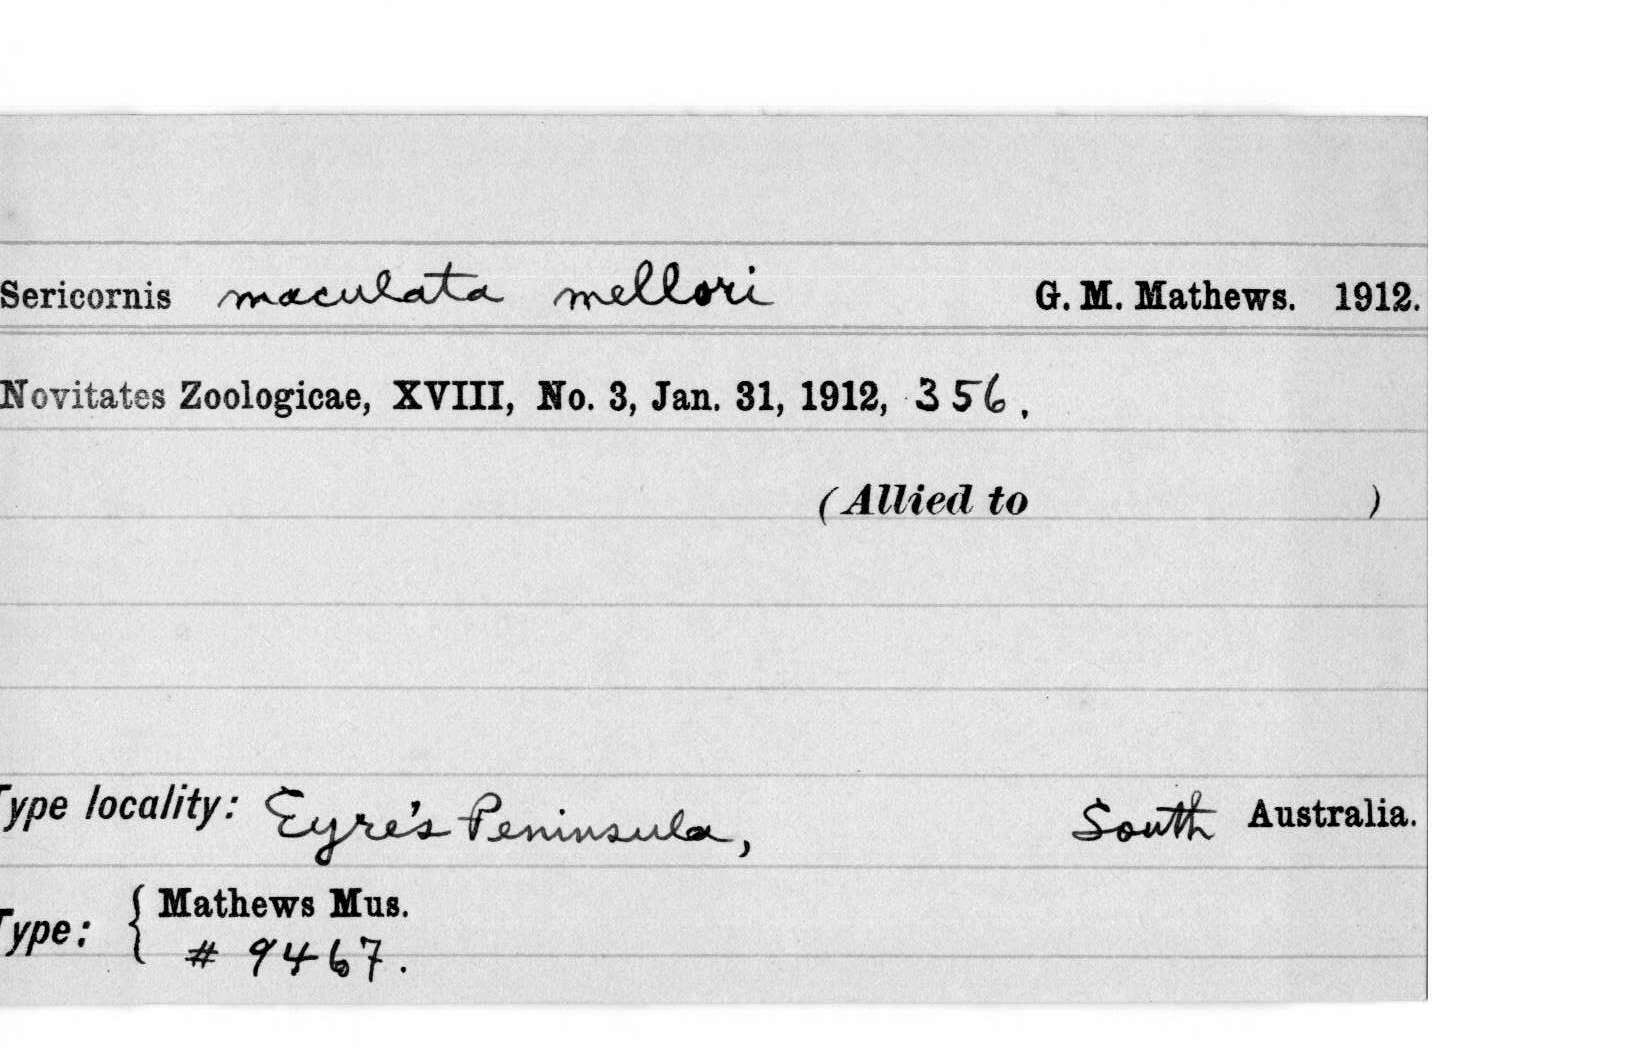 Sericornis maculata mellori G. M. Mathews. 1912.
Novitates Zoologicae, XVIII, No. 3, Jan. 31, 1912, 356.
(Allied to )
Type locality: Eyre's Peninsula, South Australia.
Type: { Mathews Mus.
# 9467.